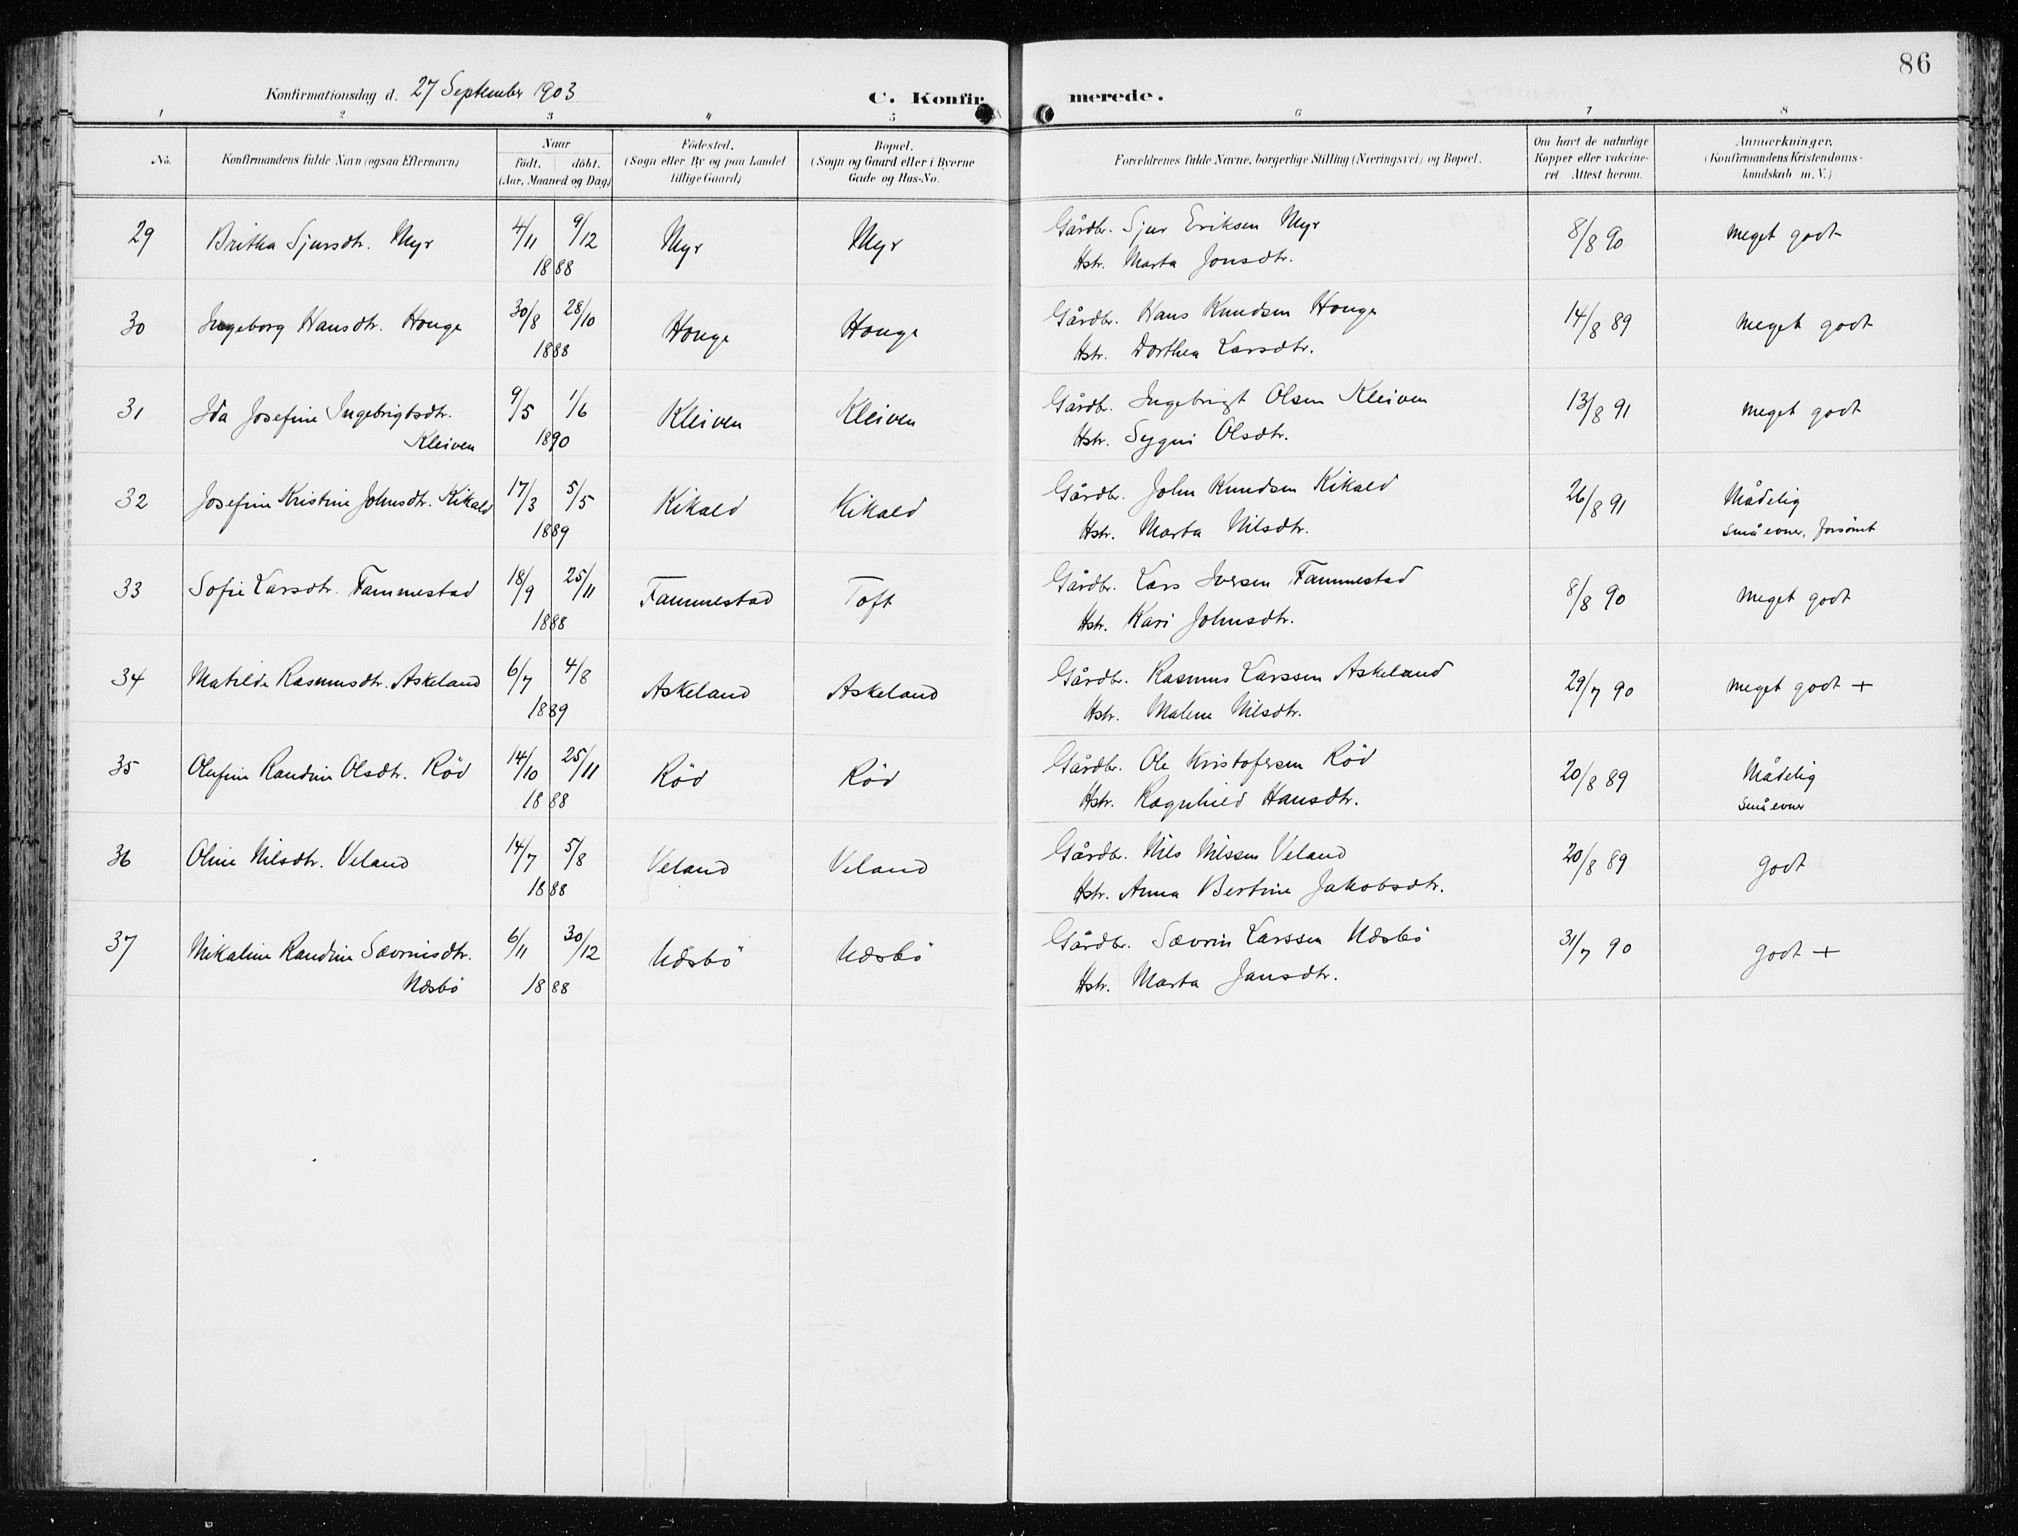 86
Konfirmationsdag d. 27 September 1903
C. Konfirmerede.
1 2 3 4 5 6 7 8
No. Konfirmandens fulde Navn (ogsaa Efternavn) Naar födt. döbt. (Aar, Maaned og Dag) Födested. (Sogn eller By og paa Landet tillige Gaard) Bopæl. (Sogn og Gaard eller i Byerne Gade og Hus-No. Forældrenes fulde Navne, borgerlige Stilling (Næringsvei) og Bopæl. Om havt de naturlige Kopper eller vaksineret Attest herom. Anmærkninger. (Konfirmandens Kristendomskundskab m. V.)
29 Britha Sjursdtr. Myr 4/11 9/12 Myr Myr Gårdbr. Sjur Eriksen Myr 8/8 90 Meget godt
1888 Hstr. Marta Jonsdtr.
30 Ingeborg Hansdtr. Houge 30/8 28/10 Houge Houge Gårdbr. Hans Knudsen Houge 14/8 89 Meget godt
1888 Hstr. Dorthea Larsdtr.
31 Ida Josefine Ingebrigtsdtr. 9/5 1/6 Kleiven Kleiven Gårdbr. Ingebrigt Olsen Kleiven 13/8 91 Meget godt
Kleiven 1890 Hstr. Sygni Olsdtr.
32 Josefine Kristine Johnsdtr. Kikald 17/3 5/5 Kikald Kikald Gårdbr. John Knudsen Kikald 26/8 91 Mådelig
1889 Hstr. Marta Nilsdtr. Små evner, forsömt
33 Sofie Larsdtr. Fammestad 18/9 25/11 Fammestad Toft Gårdbr. Lars Iversen Fammestad 8/8 90 Meget godt
1888 Hstr. Kari Johnsdtr.
34 Matilde Rasmusdtr. Askeland 6/7 4/8 Askeland Askeland Gårdbr. Rasmus Larssen Askeland 29/7 90 Meget godt +
1889 Hstr. Malene Nilsdtr.
35 Olufine Randine Olsdtr. Röd 14/10 25/11 Röd Röd Gårdbr. Ole Kristofersen Röd 20/8 89 Mådelig
1888 Hstr. Ragnhild Hansdtr. Små evner
36 Oline Nilsdtr. Veland 14/7 5/8 Veland Veland Gårdbr. Nils Nilssen Veland 20/8 89 Godt
1888 Hstr. Anna Bertine Jakobsdtr.
37 Mikaline Randine Sævrinsdtr. 6/11 30/12 Næsbö Næsbö Gårdbr. Sævrin Larssen Næsbö 31/7 90 Godt +
Næsbö 1888 Hstr. Marta Jansdtr.